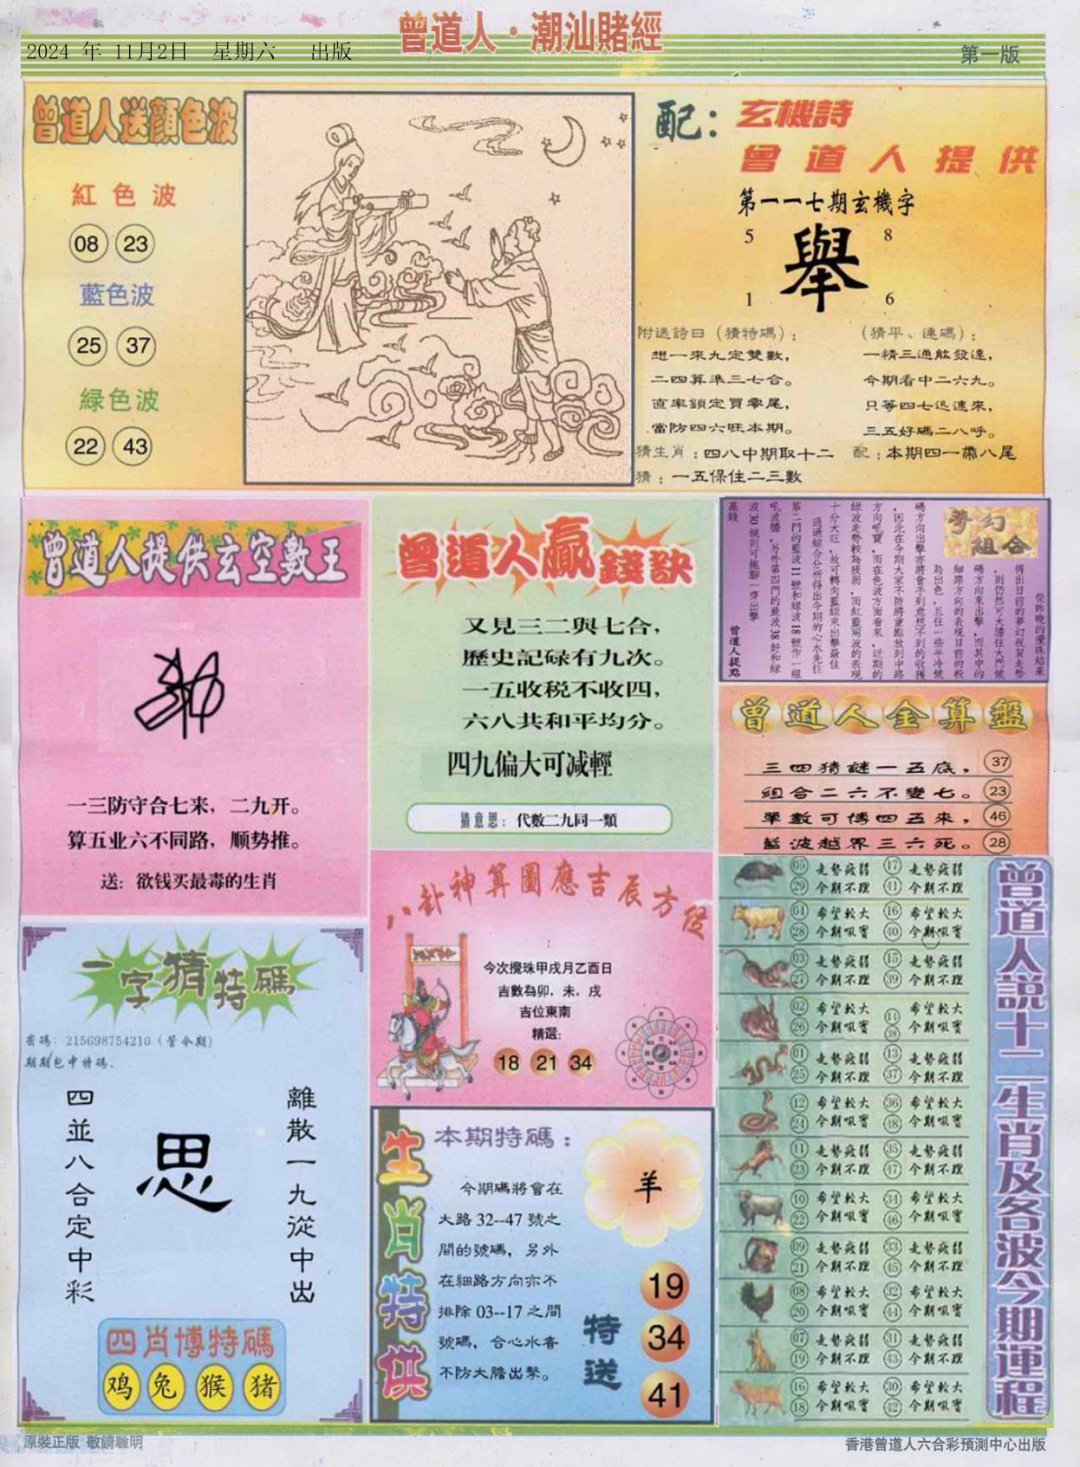 曾道人·潮汕賭經
2024 年 11月2日 星期六 出版
第一版
曾道人送顔色波
紅色波
08 23
藍色波
25 37
緑色波
22 43
配：玄機詩
曾道人提供
第一一七期玄機字
5 8
舉
1 6
附送詩曰（猜特碼）：
想一來九定雙數，
二四算準三七合。
直率鎖定買零尾，
當防四六旺本期。
猜生肖：四八中期取十二
猜：一五保住二三數
（猜平、連碼）：
一精三通能發達，
今期看中二六九。
只等四七迅速來，
三五好碼二八呼。
配：本期四一帶八尾
曾道人提供玄空數王
一三防守合七来，二九开。
算五业六不同路，顺势推。
送：欲钱买最毒的生肖
曾道人贏錢訣
又見三二與七合，
歷史記碌有九次。
一五收税不收四，
六八共和平均分。
四九偏大可减輕
猜意思：代數二九同一類
夢幻組合
曾道人提點
曾道人金算盤
三四猜謎一五底，37
組合二六不變七。23
單數可傳四五來，46
藍波越界三六死。28
一字猜特碼
密碼：215698754210（管令期）
期期包中特碼．
四並八合定中彩
思
離散一九從中出
四肖博特碼
鸡 兔 猴 猪
八卦神算圖應吉辰方位
今次攪珠甲戌月乙酉日
吉數為卯，未，戌
吉位東南
精選:
18 21 34
生肖特供
本期特碼：
今期碼將會在
大路 32--47 號之
間的號碼，另外
在細路方向亦不
排除 03--17 之間
號碼，合心水者
不防大膽出擊。
羊
特送
19
34
41
曾道人說十二生肖及各波今期運程
05 走勢疲弱 17 走勢疲弱
29 今期不理 41 今期不理
04 希望較大 16 希望較大
28 今期吼實 40 今期吼實
03 走勢疲弱 15 走勢疲弱
27 今期不理 39 今期不理
02 希望較大 14 希望較大
26 今期吼實 38 今期吼實
01 走勢疲弱 13 走勢疲弱
25 今期不理 37 今期不理
12 希望較大 36 希望較大
24 今期吼實 48 今期吼實
11 走勢疲弱 35 走勢疲弱
23 今期不理 47 今期不理
10 希望較大 34 希望較大
22 今期吼實 46 今期吼實
09 走勢疲弱 33 走勢疲弱
21 今期不理 45 今期不理
08 希望較大 32 希望較大
20 今期吼實 44 今期吼實
07 走勢疲弱 31 走勢疲弱
19 今期不理 43 今期不理
16 希望較大 30 希望較大
18 今期吼實 42 今期吼實
原裝正版 敬請聯明
香港曾道人六合彩預測中心出版